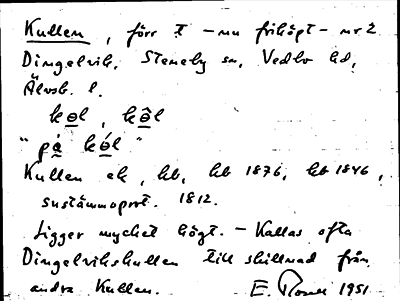 Kullen, förr t – nu friköpt – nr 2
Dingelvik, Steneby sn, Vedbo hd,
Älvsb. l.
kɵl, kɵ̂l
"på kɵ́l"
Kullen ek, kb, kb 1876, kb 1846,
sustämmoprot. 1812.
Ligger mycket högt. – Kallas ofta
Dingelvikskullen till skillnad från
andra Kullen. E. 1951